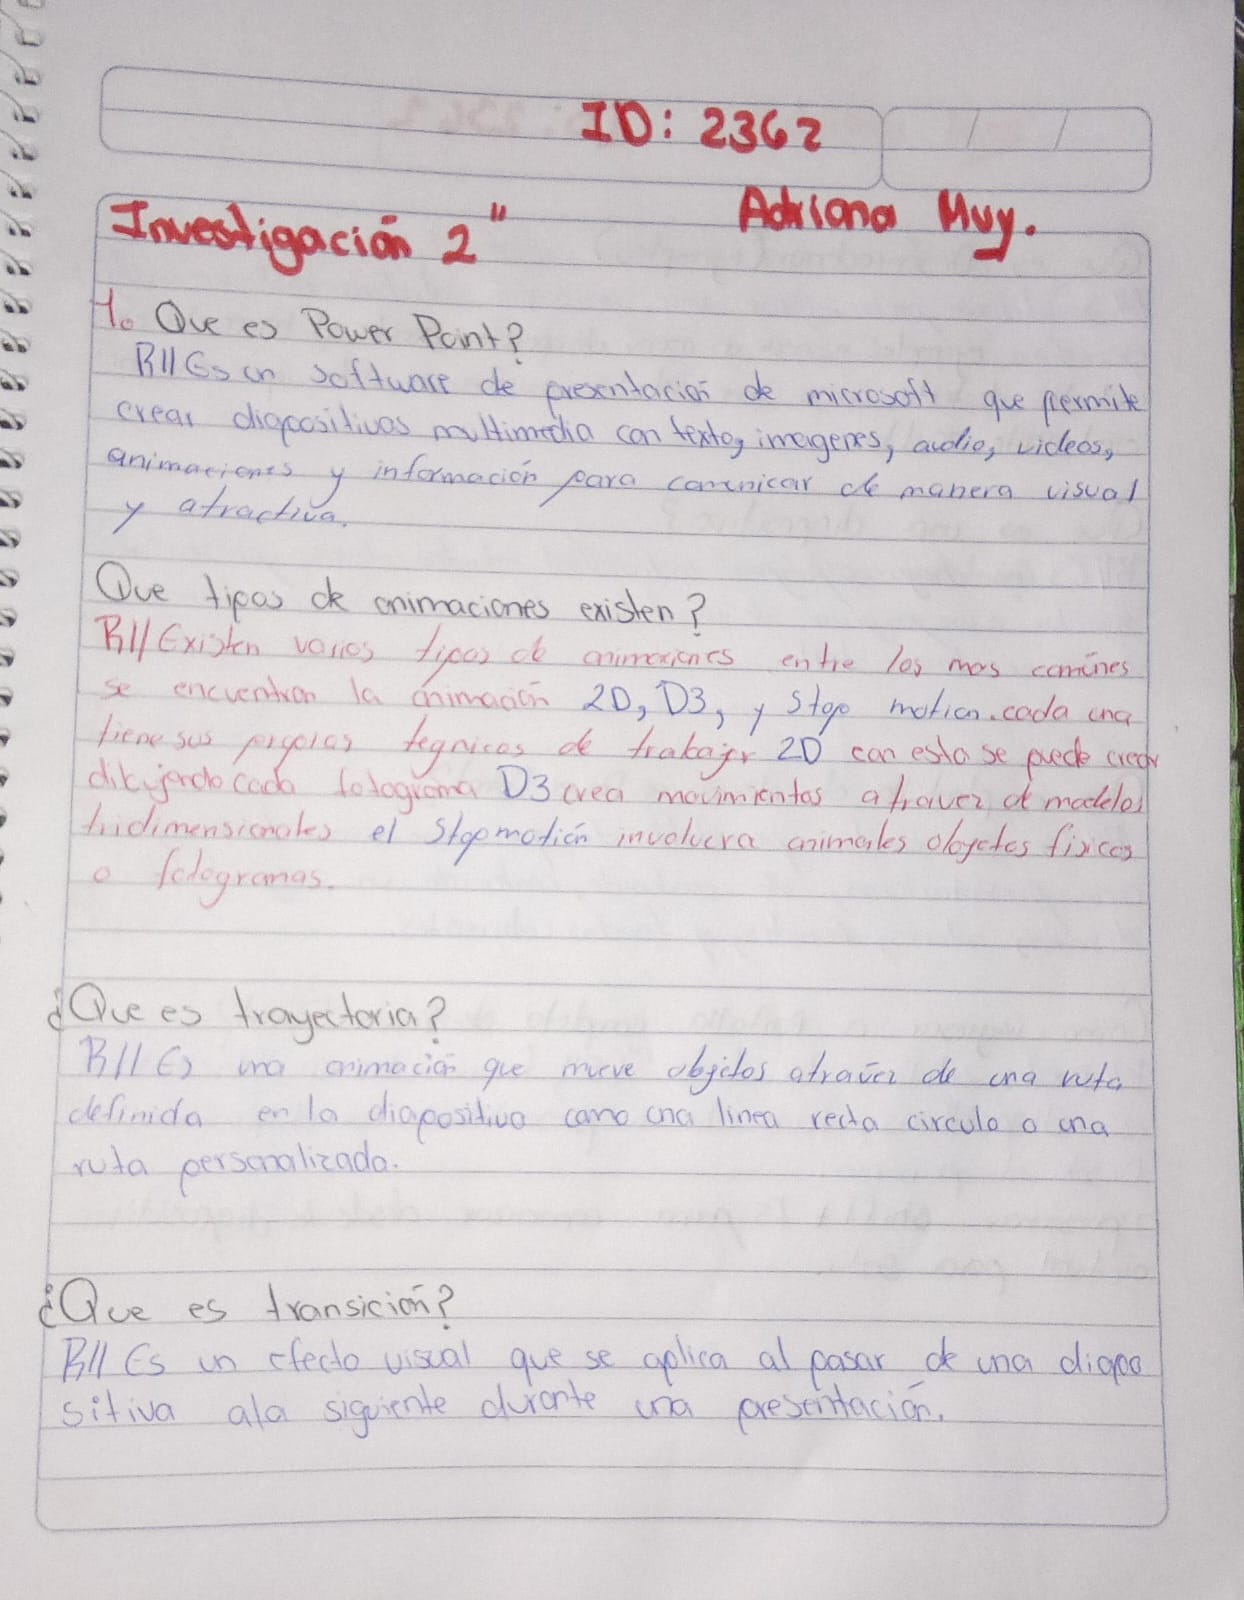 ID: 2362
Adriana Muy.
Investigación 2"
1. Que es Power Point?
R// Es un software de presentación de microsoft que permite
crear diapositivas multimedia con texto, imagenes, audio, videos,
animaciones y información para comunicar de manera visual
y atractiva.
Que tipos de animaciones existen?
R// Existen varios tipos de animaciones entre los mas comúnes
se encuentran la animación 2D, D3, y Stop motion. cada una
tiene sus propias tegnicas de trabajr 2D con esta se puede crear
dibujando cada fotograma D3 crea movimientos atravez de modelos
tridimensionales el Stop motión involucra animales objetos fisicos
o fotogramas.
¿Que es trayectoria?
R// Es una animación que mueve objetos atravéz de una ruta
definida en la diapositiva como una linea recta circulo o una
ruta personalizada.
¿Que es transición?
R// Es un efecto visual que se aplica al pasar de una diapo
sitiva ala siguiente durante una presentación.